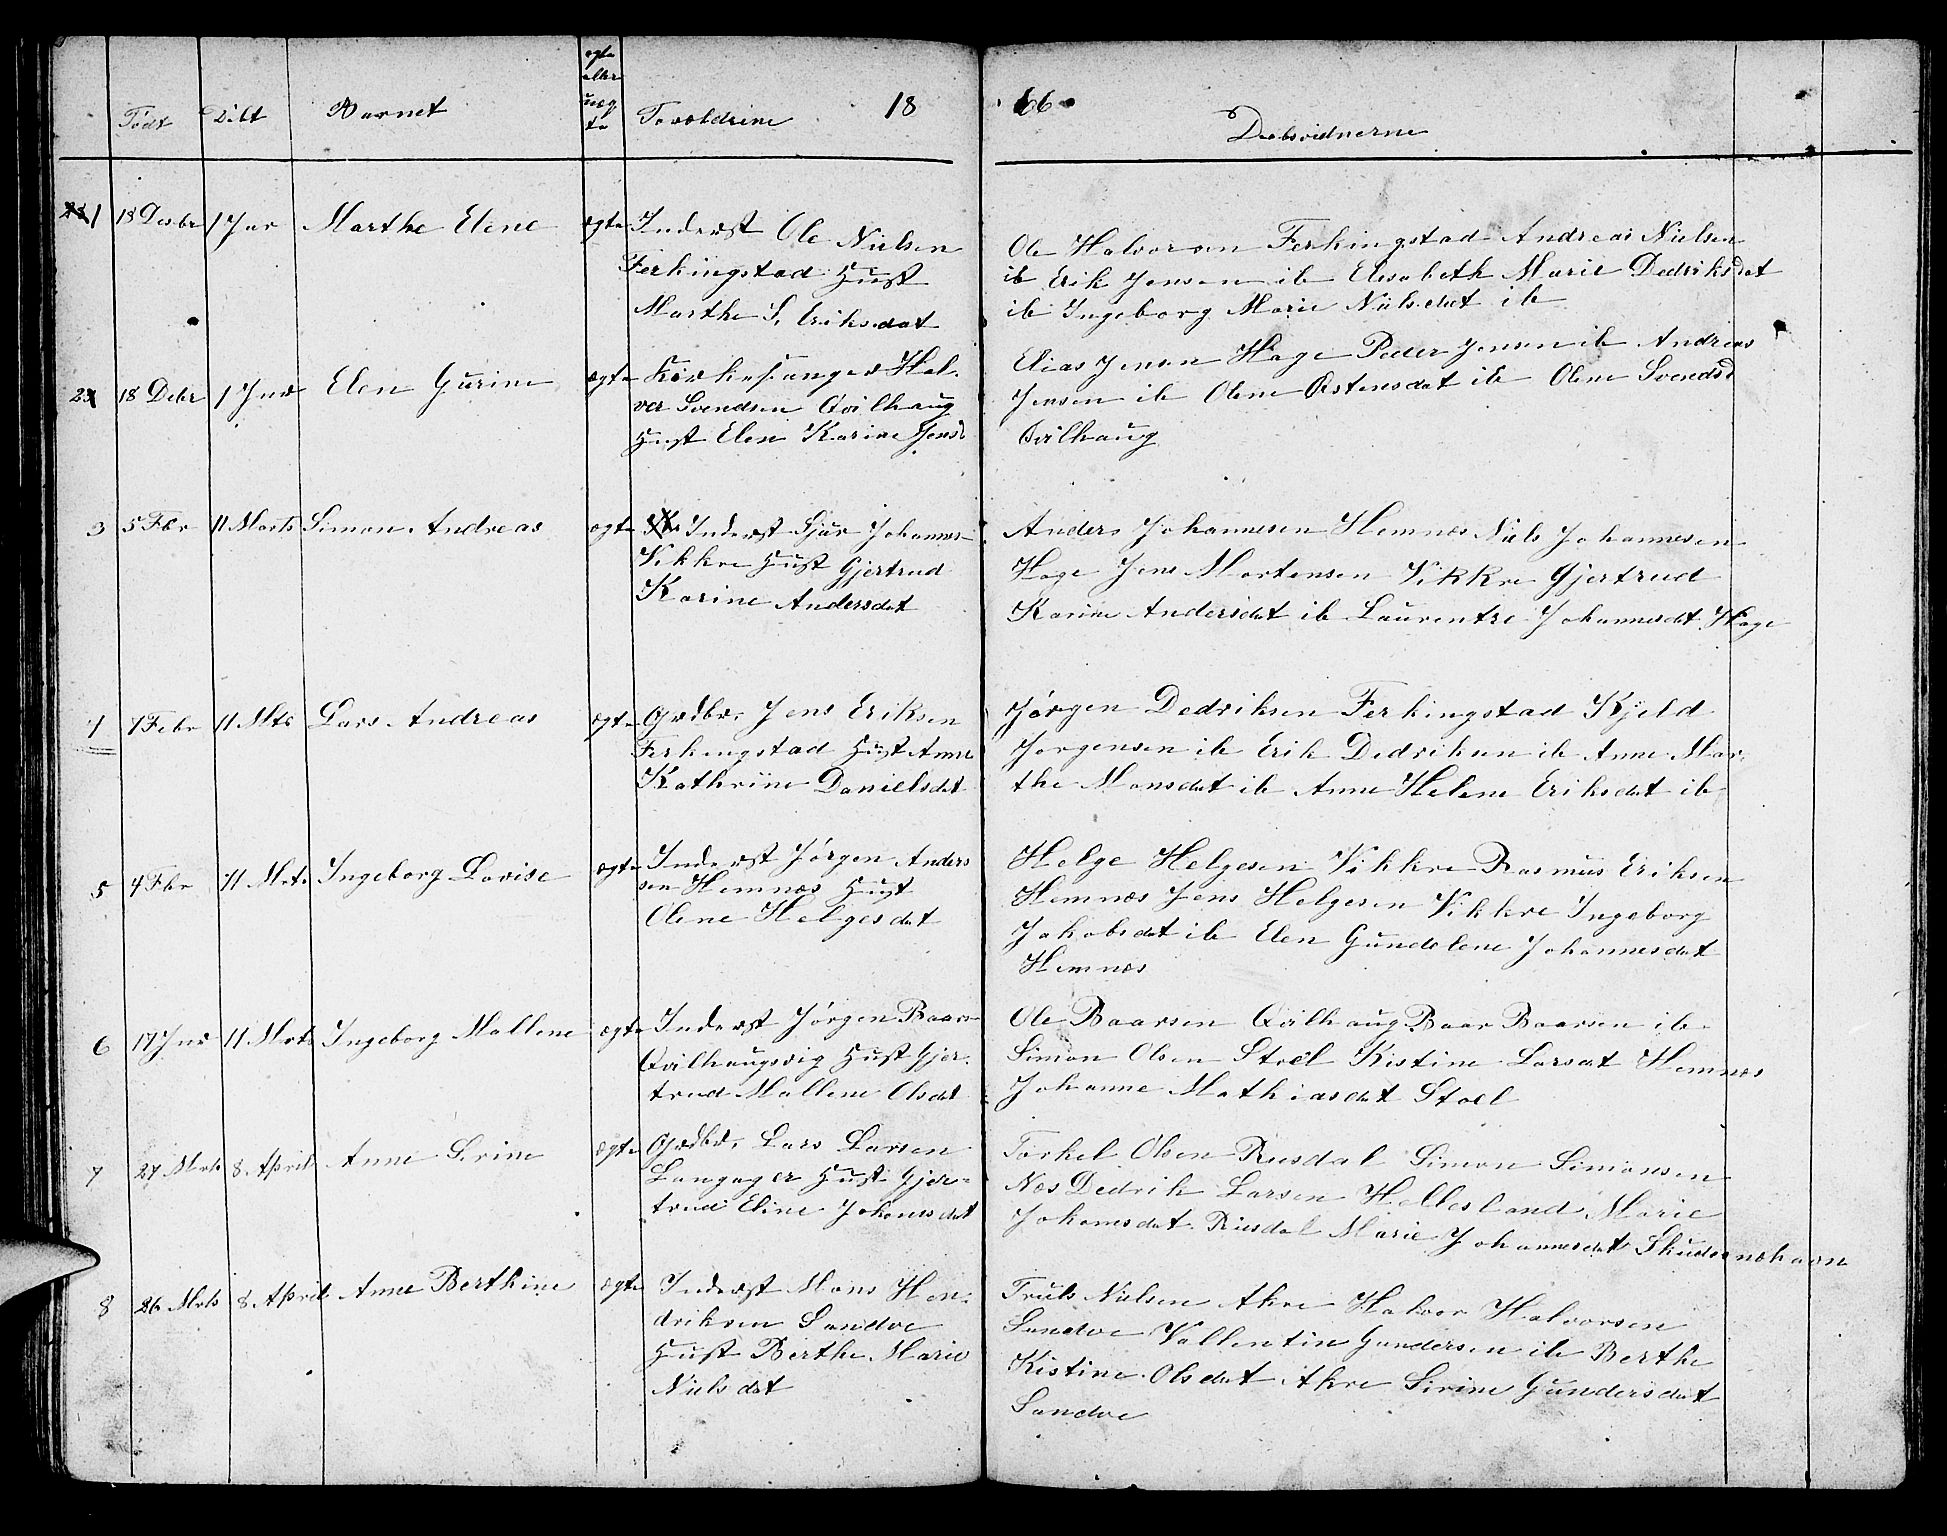 ægte
eller
uæg
te
Født Döbt Barnet Forældrene 18 66
Döbsvidnerne
1 18 Decbr 1 Jnr Marthe Elene ægte Inderst Ole Nielsen
Ferkingstad Hust
Marthe S. Eriksdat
Ole Halvorsen Ferkingstad Andreas Nielsen
ib Erik Jensen ib Elisabeth Marie Dedriksdat
ib Ingeborg Marie Nielsdat ib
2 18 Debr 1 Jnr Elen Gurine ægte Kirkesanger Hal-
vor Svendsen Qvilhaug
Hust Elen Karine Jensd
Elias Jensen Hage Peder Jensen ib Andreas
Jensen ib Olene Østensdat ib Olene Svendsd
Qvilhaug
3 5 Fbr 11 Marts Simon Andreas ægte Inderst Sjur Johannes-
Vikkre Hust Gjertrud
Karine Andersdat
Anders Johannesen Hemnes Niels Johannesen
Hage Jens Mortensen Vikkre Gjertrud
Karine Andersdat ib Laurentze Johannesdat Hage
4 7 Febr 11 Mts Lars Andreas ægte Grdbr. Jens Eriksen
Ferkingstad Hust Anne
Kathriine Danielsdat
Jørgen Dedriksen Ferkingstad Kjeld
Jørgensen ib Erik Dedriksen ib Anne Mar-
the Monsdat ib Anne Helene Eriksdat ib
5 4 Fbr 11 Mrts Ingeborg Lovise ægte Inderst Jørgen Anders
sen Hemnes Hust
Olene Helgesdat
Helge Helgesen Vikkre Rasmus Eriksen
Hemnes Jens Helgesen Vikkre Ingeborg
Jakobsdat ib Elen Gundelene Johannesdat
Hemnes
6 17 Jnr 11 Mrts Ingeborg Mallene ægte Inderst Jørgen Baars-
Qvilhaugsvig Hust Gjer-
trud Mallene Olsdat
Ole Baarsen Qvilhaug Baar Baarsen ib
Simon Olsen Stoel Kistine Larsdat Hemnes
Johanne Mathiasdat Stoel
7 27 Mrts 8 April Anne Serine ægte Grdbr. Lars Larsen
Langager Hust Gjer-
trud Eline Johansdat
Torkel Olsen Risdal Simon Simonsen
Nes Dedrik Larsen Hellesland Marie
Johansdat Risdal Marie Johannesdat Skudesneshavn
8 26 Mrts 8 April Anne Berthine ægte Inderst Mons Hen-
driksen Sandve
Hust Berthe Marie
Nielsdat
Truls Nielsen Akre Halvor Halvorsen
Sandve Vallentin Gundersen ib Berthe
Kistine Olsdat Akre Sirine Gundersdat
Sandve